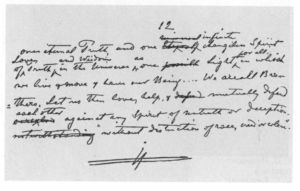 12.
infinite
one eternal Truth, and one changeless Spirit
Love, and Wisdom as for all,
of Truth, in the Universe, one Light, in which
we live & move & have our Being.... We are all Bro-
thers. Let us then love, help, & mutually defend
each other against any Spirit of untruth or deception,
without distinction of race, creed or color.